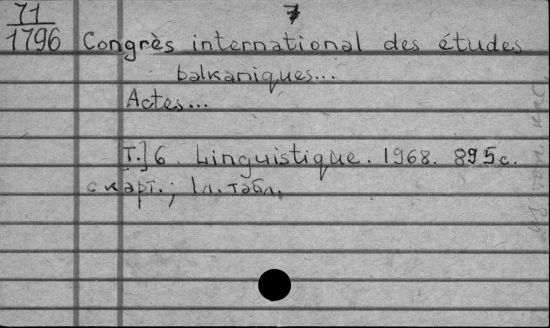 71
1796
7
Congrès international des études
balkaniques...
Actes...
[T.] 6. Linguistique. 1968. 895с.
с карт.; 1л. табл.